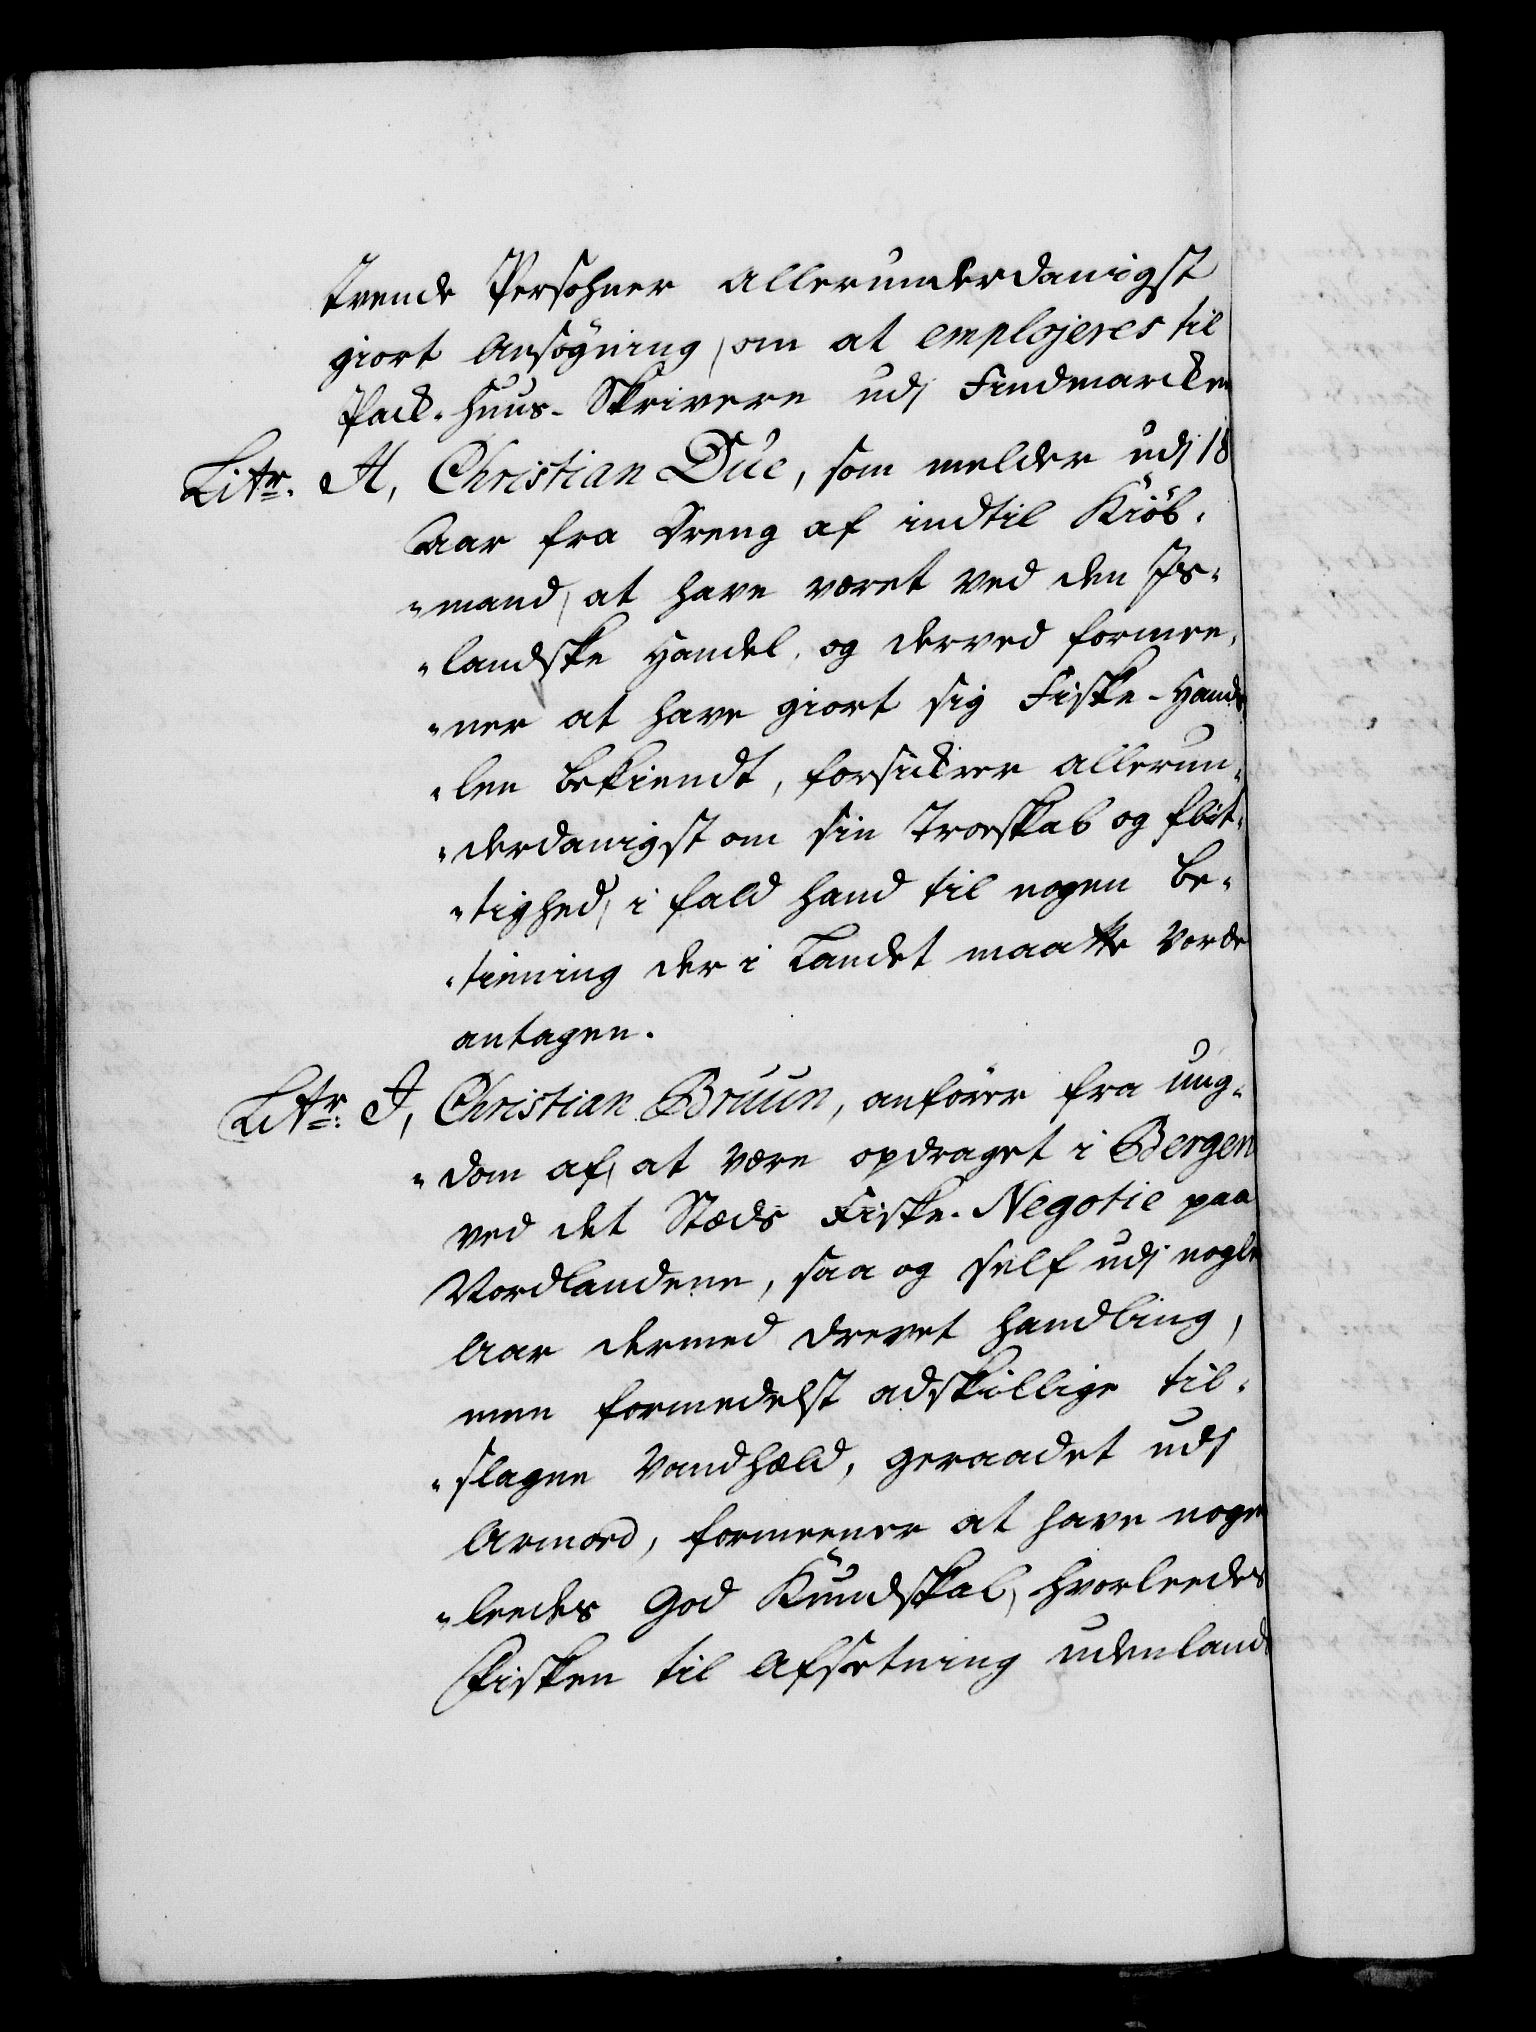 trende Persohner allerunderdanigst
giort Ansøgning, om at emplojeres til
Pack-Huus-Skrivere udj Findmarcken
Litr. H, Christian Due, som melder udj 18
Aar fra Dreng af indtil Kiöb-
-mand, at have været ved den Is-
-landske Handel, og derved formee-
-ner at have giort sig Fiske-Hand-
-len bekiendt, forsickrer allerun-
-derdanigst om sin Troeskab og flit-
-tighed, i fald hand til nogen be-
-tiening der i Landet maatte vorde
antagen.
Litr. I, Christian Bruun, anfører fra ung-
-dom af, at være opdraget i Bergen
ved det Stæds Fiske-Negotie paa
Nordlandene, saa og self udj nogle
Aar dermed drevet Handling,
men formedelst adskillige til-
-slagne Vandheld, geraadet udj
Armod, formeener at have noge
-leedes god Kundskab, hvorleedes
Fisken til Afsetning udenlands